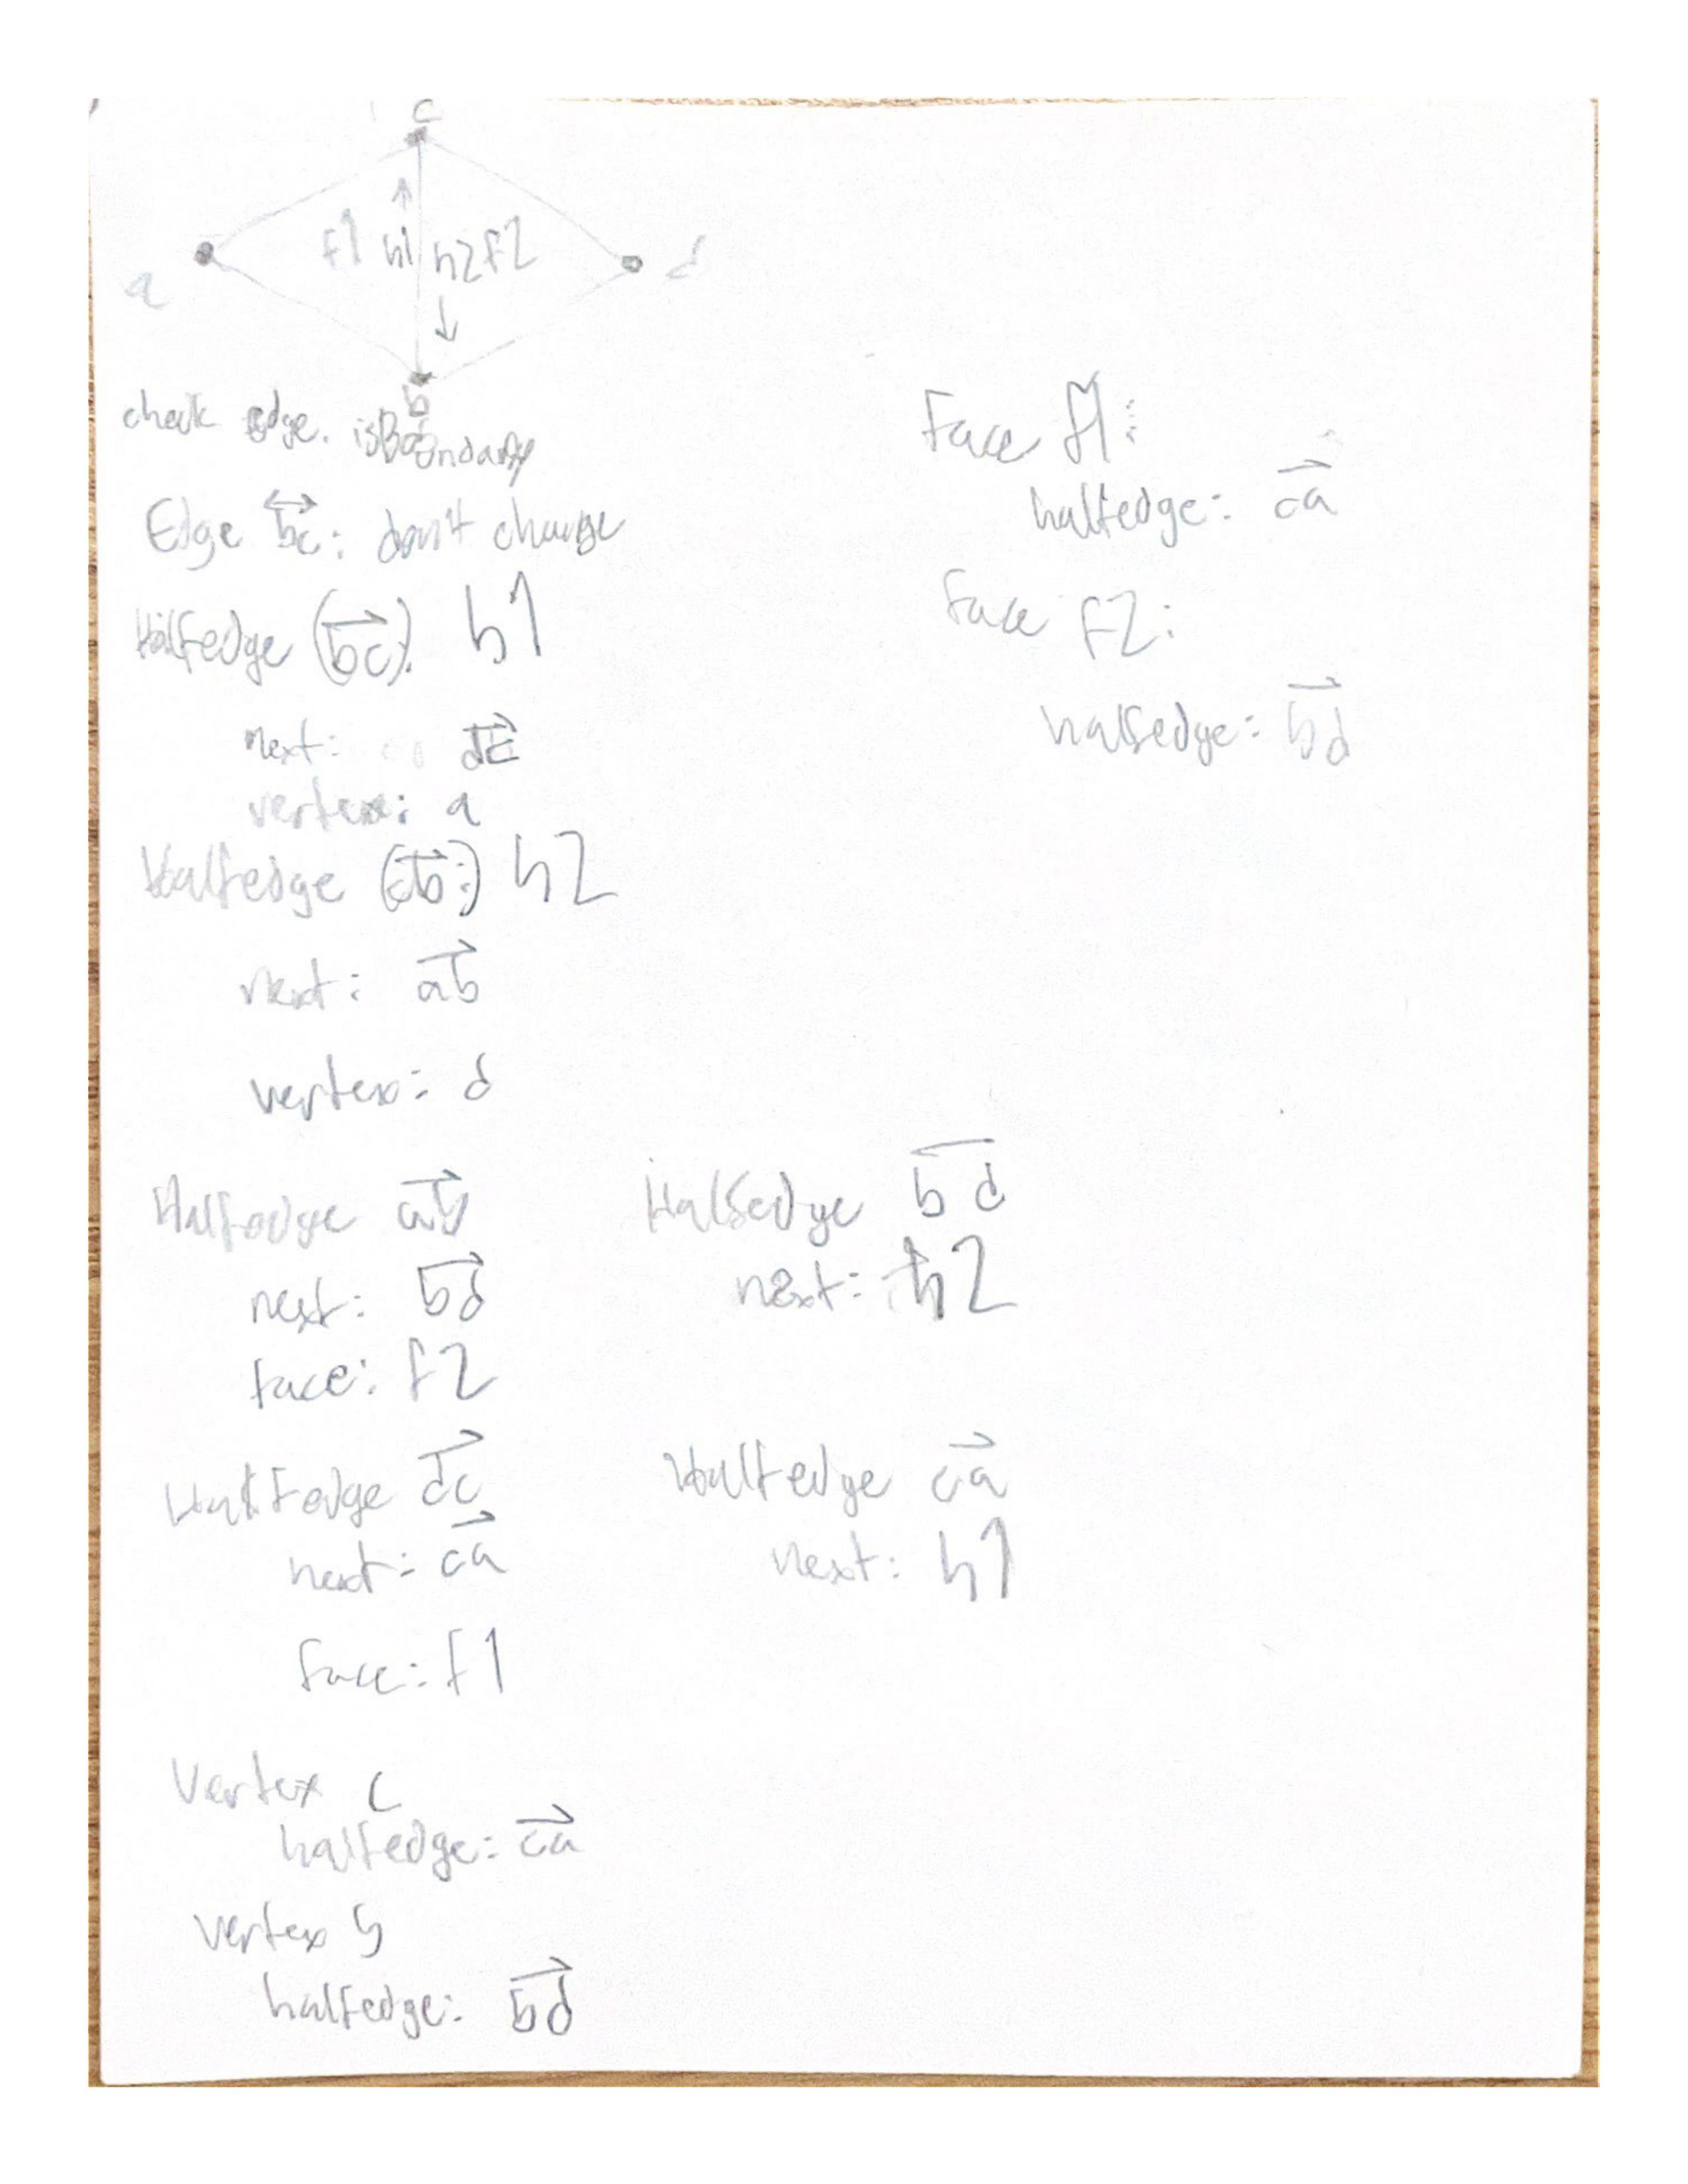 c
f1 h1 h2 f2
a
d
b
check edge. isBoundary
Edge bc: don't change
Halfedge (bc): h1
next: dc
vertex: a
Halfedge (cb:) h2
next: ab
vertex: d
Halfedge ab
next: bd
face: f2
Halfedge dc
next: ca
face: f1
Vertex c
halfedge: ca
vertex b
halfedge: bd
Halfedge bd
next: h2
Halfedge ca
next: h1
Face f1:
halfedge: ca
face f2:
halfedge: bd